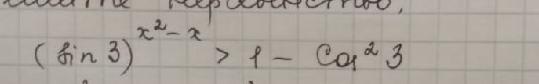 неравенство,
(sin 3)^{x^2 - x} > 1 - Cos^2 3